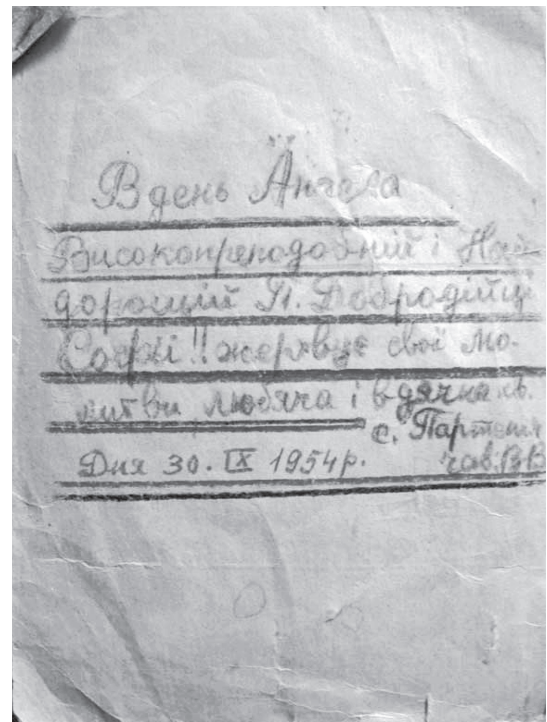 В день Ангела
Високопреподобній і Най-
дорощій П. Добродійці
Софії!! жертвує свої мо-
литви любяча і вдячна св.
с. Партенія
Дня 30. IX 1954р. ЧСВВ